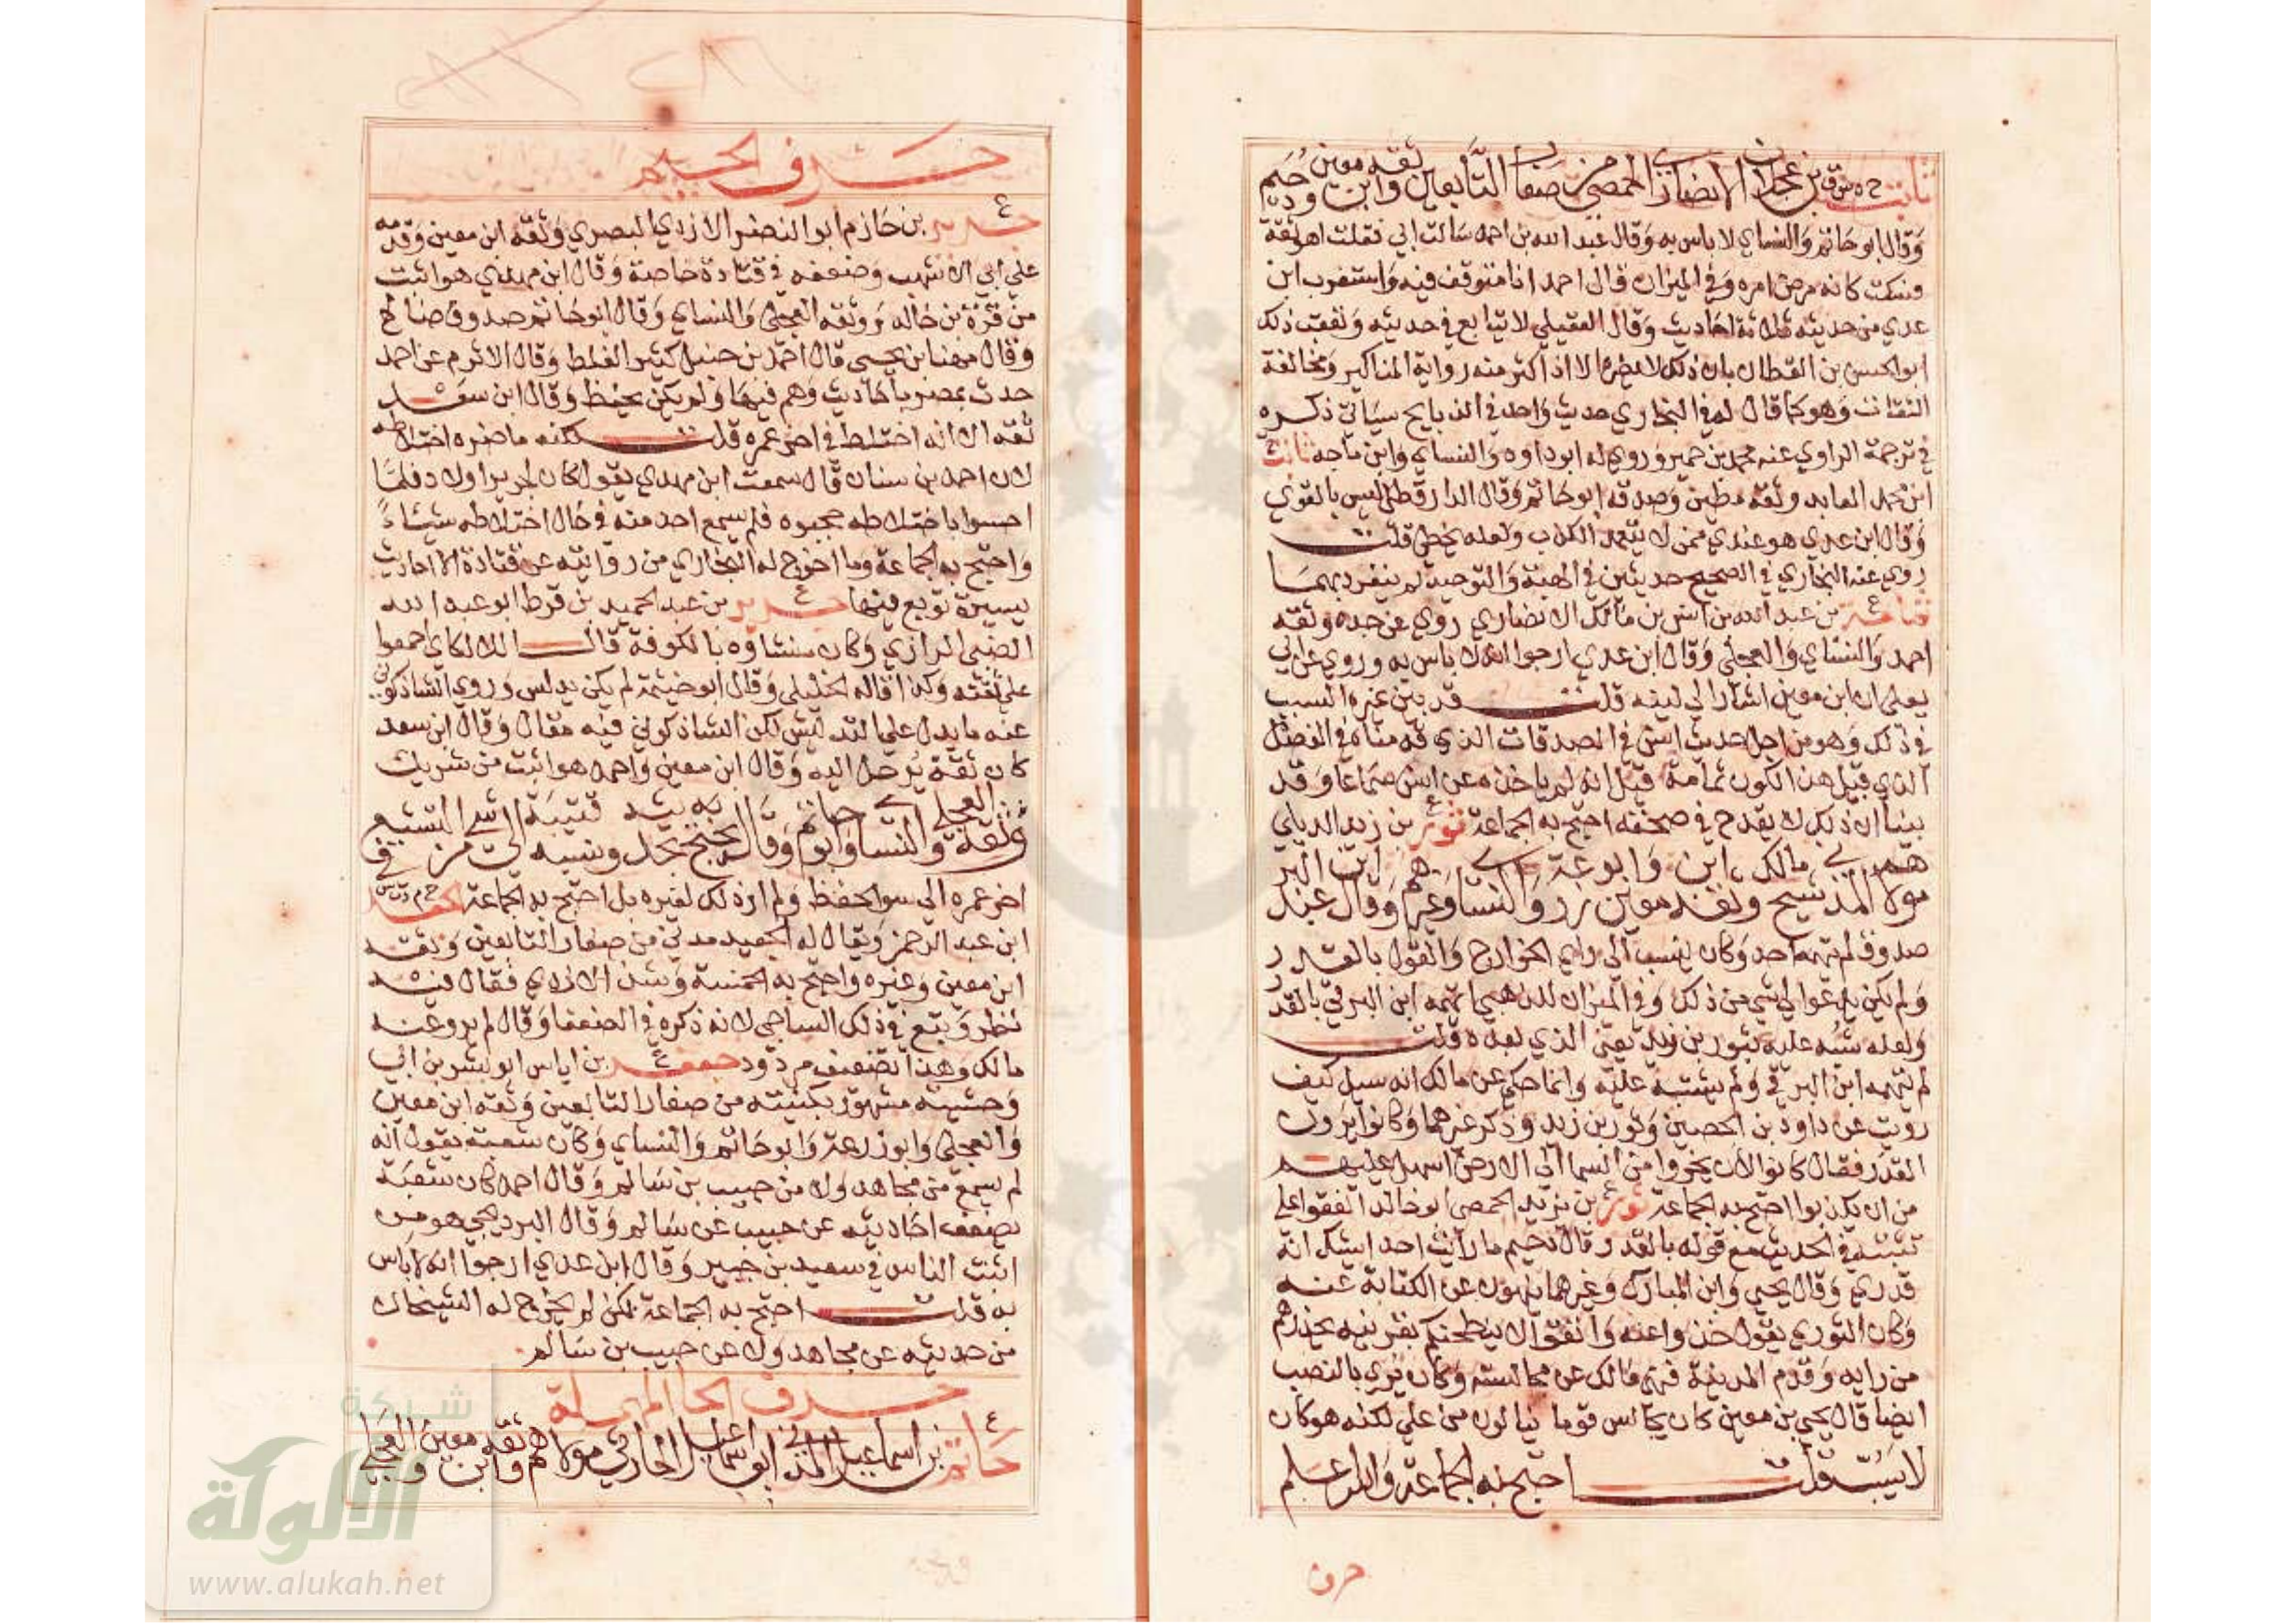 ثابت خ د س ق بن عجلان الانصاري الحمصي من صغار التابعين وثقه ابن معين ودحيم
وقال ابو حاتم والنساي لا باس به وقال عبد الله بن احمد سالت ابي فقلت اهو ثقة
فسكت كانه مرض امره وفي الميزان قال احمد انا متوقف فيه واستغرب ابن
عدي من حديثه ثلاثة احاديث وقال العقيلي لا يتابع في حديثه وتعقب ذلك
ابو الحسن بن القطان بان ذلك لا يضره الا اذا كثر منه رواية المناكير ومخالفة
الثقات وهو كما قال له في البخاري حديث واحد في الذبايح سياتي ذكره
في ترجمة الراوي عنه محمد بن حمير وروي له ابو داود والنساي وابن ماجه ثابت خ
ابن محمد العابد وثقه مطين وصدقه ابو حاتم وقال الدارقطني ليس بالقوي
وقال ابن عدي هو عندي ممن لا يتعمد الكذب ولعله يخطي قلت
روي عنه البخاري في الصحيح حديثين في الهبة والتوحيد لم ينفرد بهما
ثمامة ع بن عبد الله بن انس بن مالك الانصاري روي عن جده وثقه
احمد والنساي والعجلي وقال ابن عدي ارجوا انه لا باس به وروي عن ابي
يعلي ان ابن معين اشار الي لينه قلت قد بين غيره السبب
في ذلك وهو من اجل حديث انس في الصدقات الذي قدمناه في الفصل
الذي قبل هذا لكون ثمامة قيل انه لم ياخذه عن انس سماعا وقد
بينا ان ذلك لا يقدح في صحته احتج به الجماعة ثور ع بن زيد الديلي
مولاهم المدني شيخ مالك وثقه ابن معين وابو زرعة والنساي وغيرهم وقال ابن عبد البر
صدوق لم يتهمه احد وكان ينسب الي راي الخوارج والقول بالقدر
ولم يكن يدعوا الي شي من ذلك وفي الميزان للذهبي اتهمه ابن البرقي بالقدر
ولعله شبه عليه بثور بن يزيد يعني الذي بعده قلت
لم يتهمه ابن البرقي ولم يشتبه عليه وانما حكي عن مالك انه سيل كيف
رويت عن داود بن الحصين وثور بن زيد وذكر غيرهما وكانوا يرون
القدر فقال كانوا لان يخروا من السما الي الارض اسهل عليهم
من ان يكذبوا احتج به الجماعة ثور ع بن يزيد الحمصي ابو خالد اتفقوا علي
تثبته في الحديث مع قوله بالقدر قال دحيم ما رايت احدا يشك انه
قدري وقال يحيي وابن المبارك وغيرهما ينهون عن الكتابة عنه
وكان الثوري يقول خذوا عنه واتقوا لا ينطحنكم بقرنيه يحذرهم
من رايه وقدم المدينة فنهي مالك عن مجالسته وكان يرمي بالنصب
ايضا قال يحيي بن معين كان يجالس قوما ينالون من علي لكنه هو كان
لا يسب قلت احتج به الجماعة والله اعلم
حرف
حرف الجيم
جرير ع بن حازم ابو النضر الازدي البصري وثقه ابن معين وقدمه
علي ابي الاشهب وضعفه في قتادة خاصة وقال ابن مهدي هو اثبت
من قرة بن خالد ووثقه العجلي والنساي وقال ابو حاتم صدوق صالح
وقال مهنا بن يحيي قال احمد بن حنبل كثير الغلط وقال الاثرم عن احمد
حدث بمصر باحاديث وهم فيها ولم يكن يحفظ وقال ابن سعد
ثقه الا انه اختلط في اخر عمره قلت لكنه ما ضره اختلاطه
لان احمد بن سنان قال سمعت ابن مهدي يقول كان لجرير اولاد فلما
احسوا باختلاطه حجبوه فلم يسمع احد منه في حال اختلاطه شيئا
واحتج به الجماعة وما اخرج له البخاري من روايته عن قتادة الا احاديث
يسيرة توبع فيها جرير ع بن عبد الحميد بن قرط ابو عبد الله
الضبي الرازي وكان منشاوه بالكوفة قال اللالكاي اجمعوا
علي ثقته وكذا قاله الخليلي وقال ابو خيثمة لم يكن يدلس وروي الشاذكوني
عنه ما يدل علي التدليس لكن الشاذكوني فيه مقال وقال ابن سعد
كان ثقة يرحل اليه وقال ابن معين واحمد هو اثبت من شريك
وثقه العجلي والنساي وابو حاتم وقال يحتج بحديثه قتيبة ونسبه الي شي من التشيع في
اخر عمره الي سو الحفظ ولم ار ذلك لغيره بل احتج به الجماعة الجعد خ م د ت س
ابن عبد الرحمن ويقال له الجعيد مدني من صغار التابعين وثقه
ابن معين وغيره واحتج به الخمسة وشذ الازدي فقال فيه
نظر وتبع في ذلك الساجي لانه ذكره في الضعفا وقال لم يرو عنه
مالك وهذا تضعيف مردود جعفر ع بن اياس ابو بشر بن ابي
وحشيه مشهور بكنيته من صغار التابعين وثقه ابن معين
والعجلي وابو زرعة وابو حاتم والنساي وكان شعبة يقول انه
لم يسمع من مجاهد ولا من حبيب بن سالم وقال احمد كان شعبة
يضعف احاديثه عن حبيب بن سالم وقال البرديجي هو من
اثبت الناس في سعيد بن جبير وقال ابن عدي ارجوا انه لا باس
به قلت احتج به الجماعة لكن لم يخرج له الشيخان
من حديثه عن مجاهد ولا عن حبيب بن سالم
حرف الحا المهملة
حاتم ع بن اسماعيل المدني ابو اسماعيل الحارثي مولاهم وثقه ابن معين والعجلي
شبكة
الألوكة
www.alukah.net